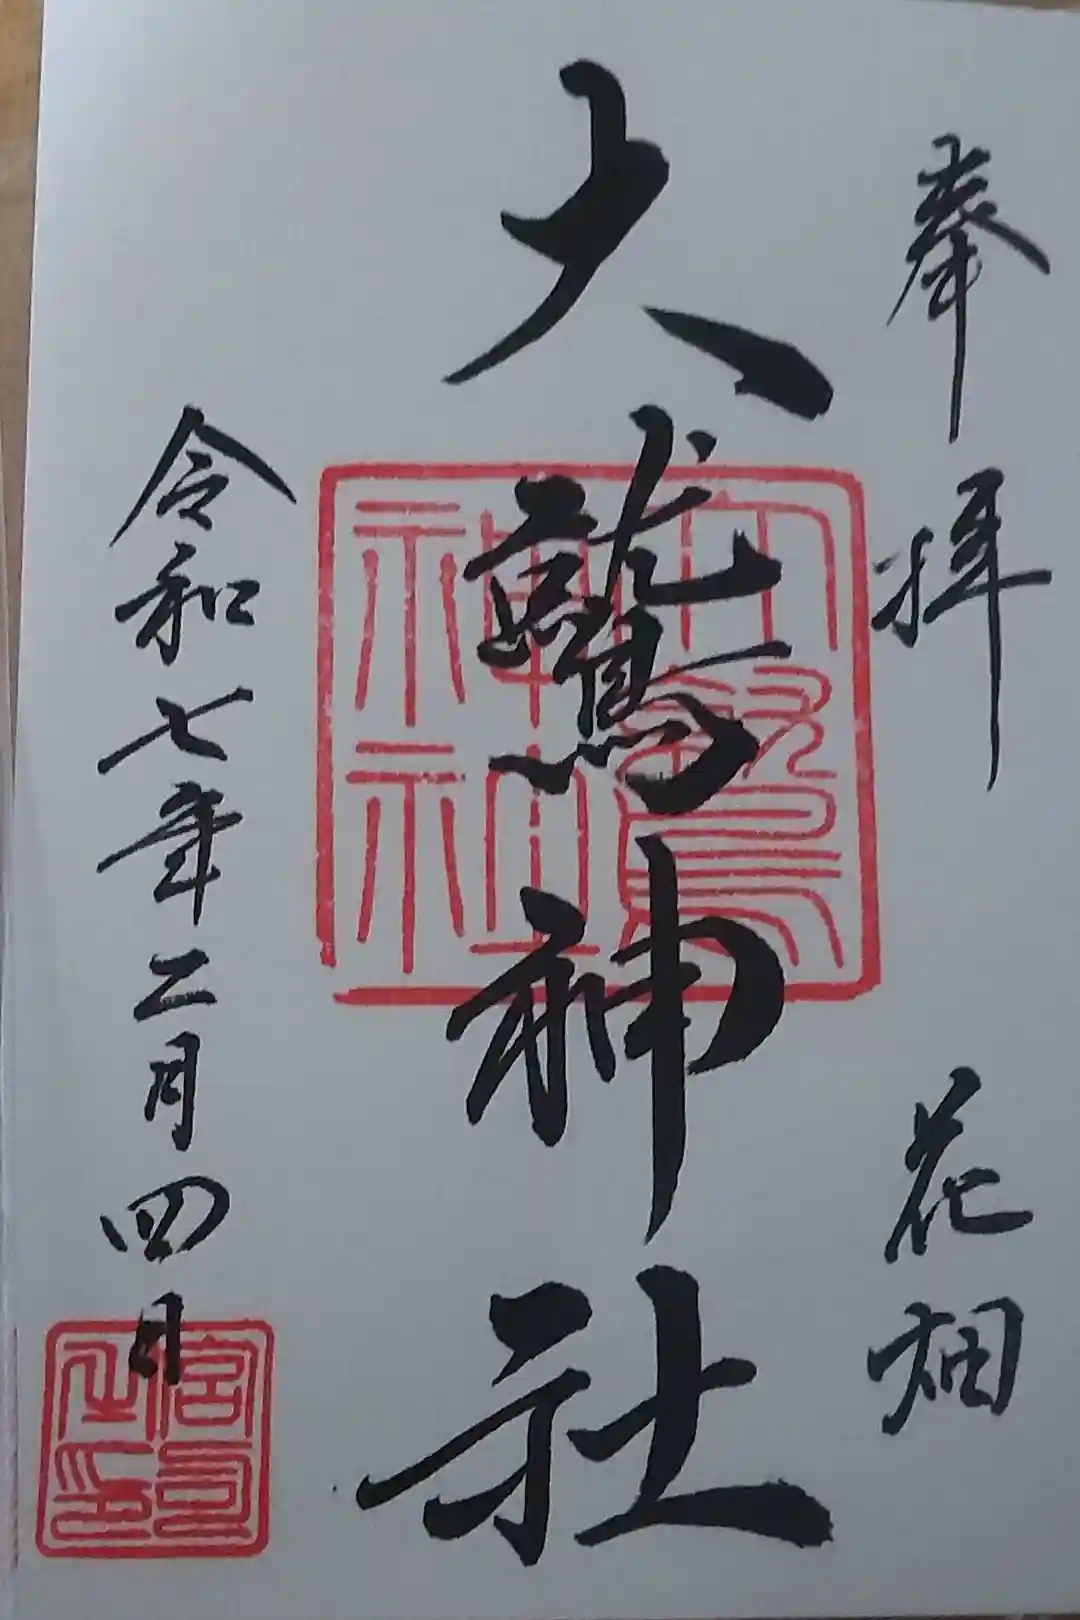 奉拝 花畑
大鷲神社
令和七年二月四日
大鷲神社
宮司之印